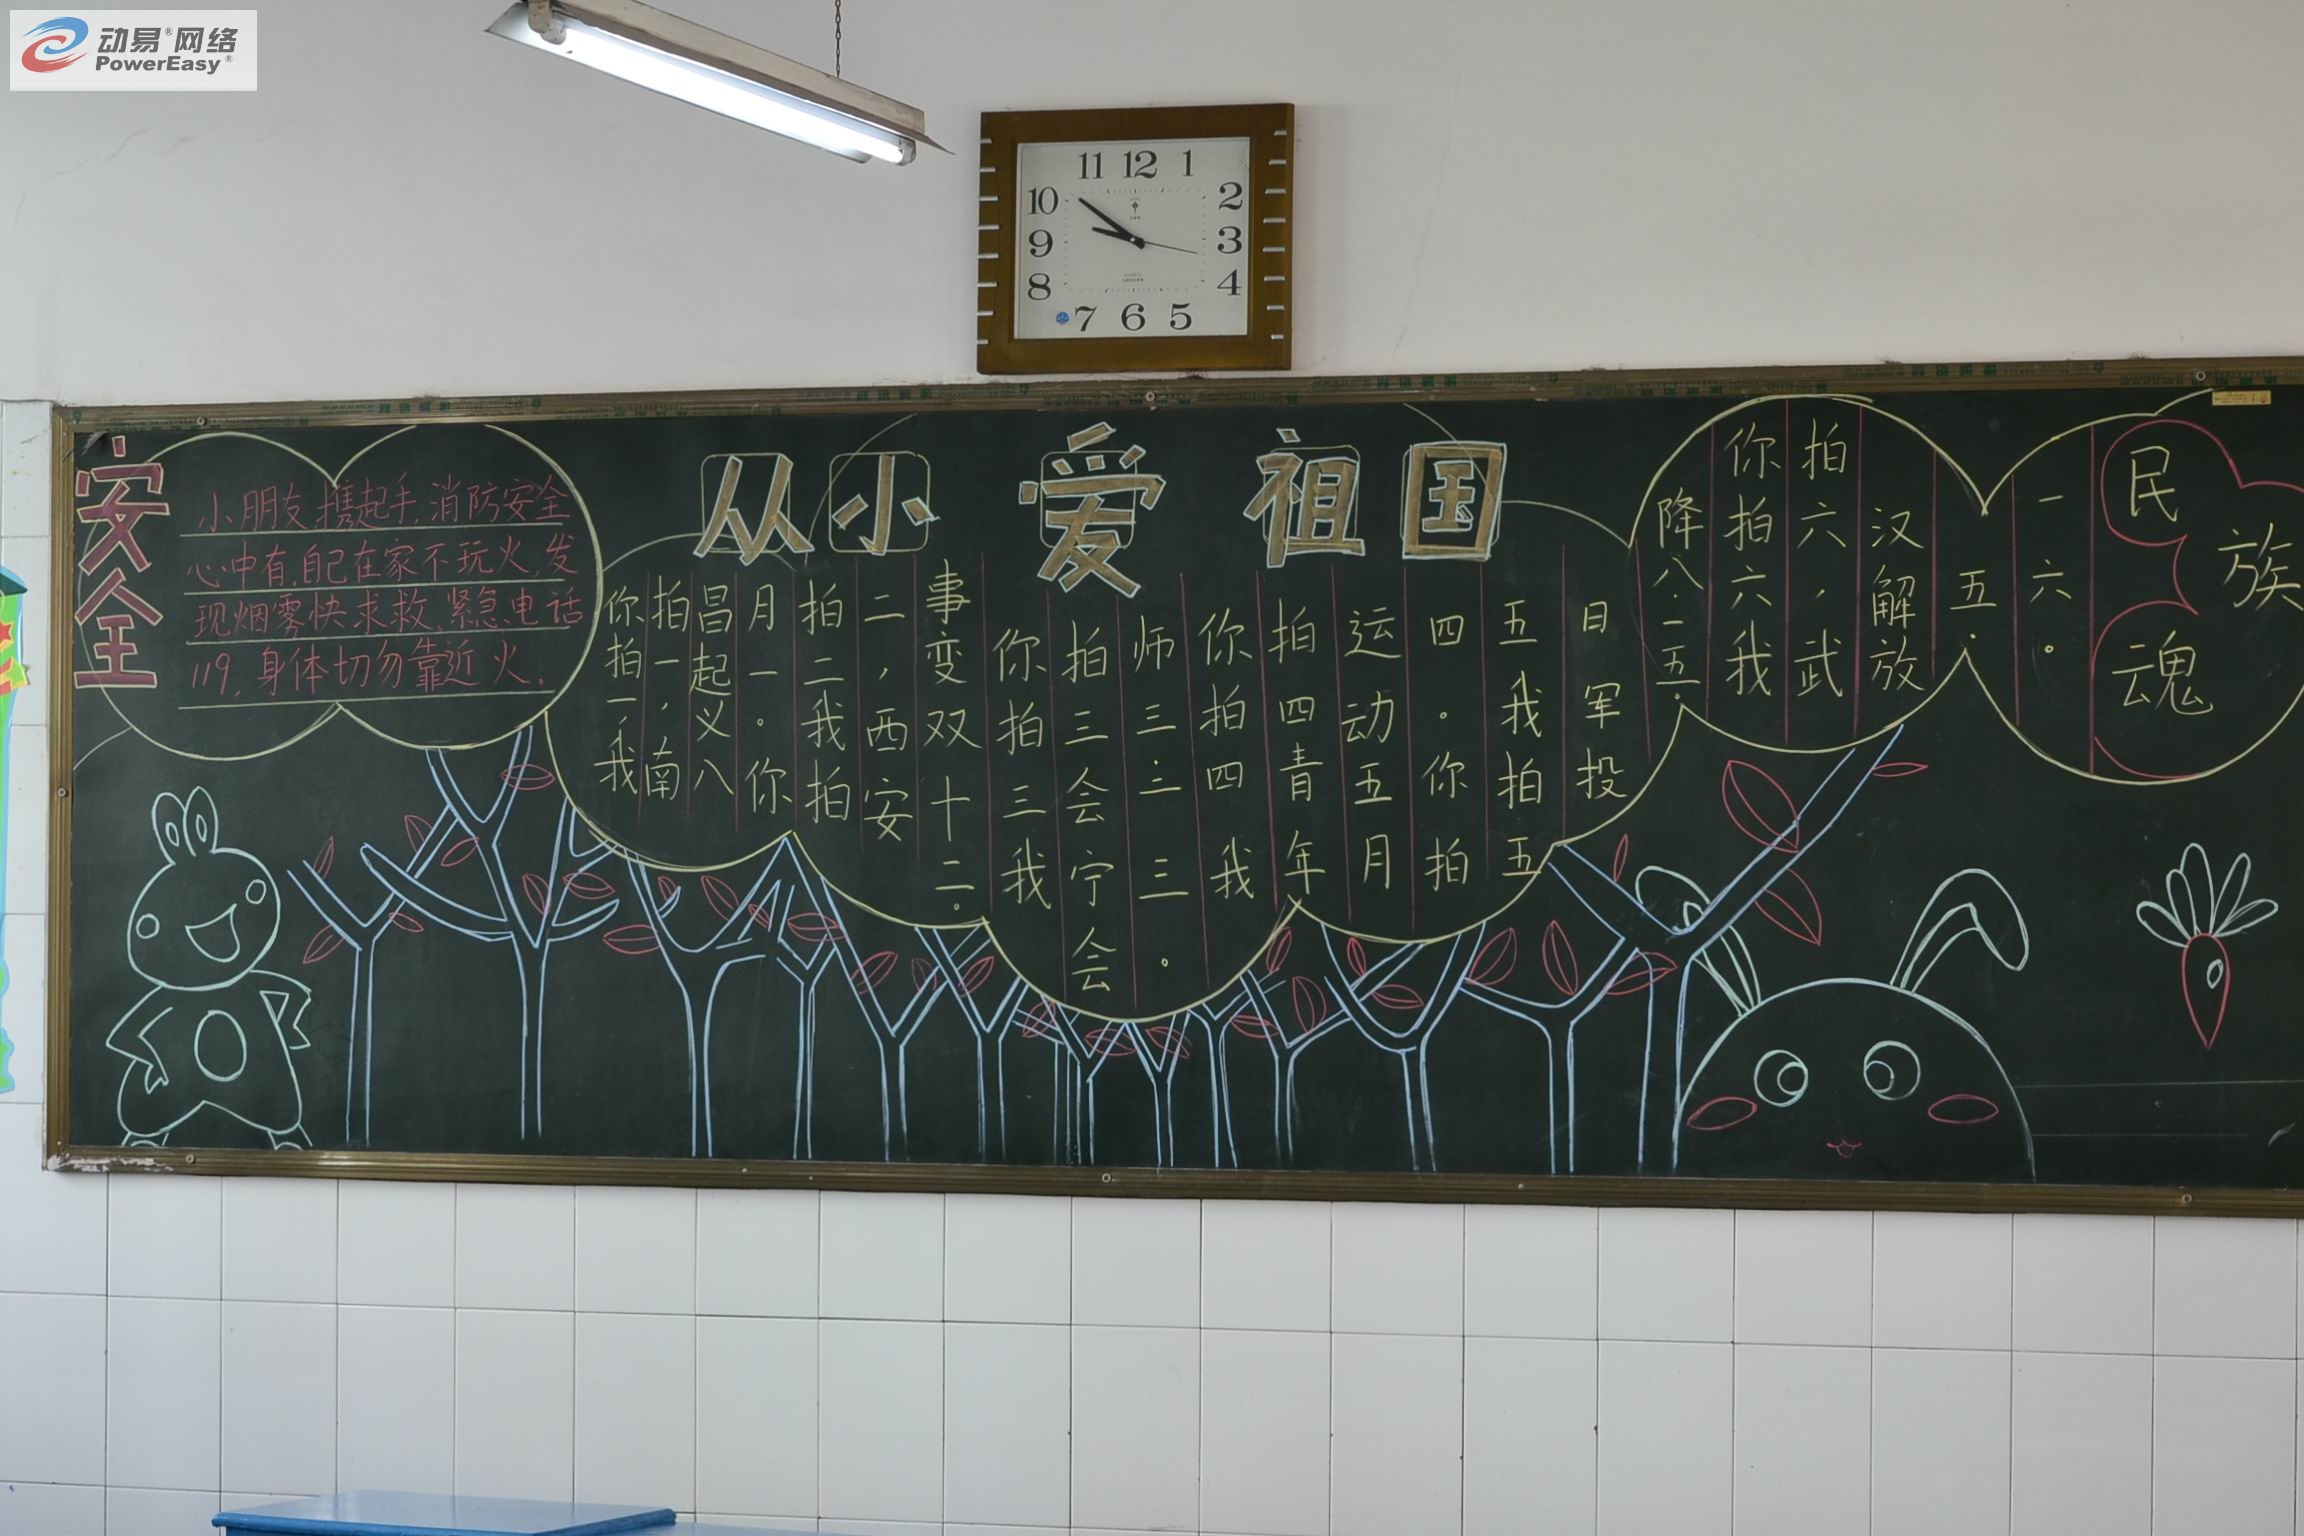 动易®网络
PowerEasy®
11 12 1
10 2
9 3
8 4
7 6 5
安全
小朋友携起手,消防安全
心中有,自己在家不玩火,发
现烟雾快求救,紧急电话
119,身体切勿靠近火.
从小爱祖国
你拍一我
拍一,南
昌起义八
月一。你
拍二我拍
二,西安
事变双十二.
你拍三我
拍三会宁会
师三.三。
你拍四我
拍四青年
运动五月
四。你拍
五我拍五
日军投
降八.一五.
你拍六我
拍六,武
汉解放
五.
一六。
民族
魂